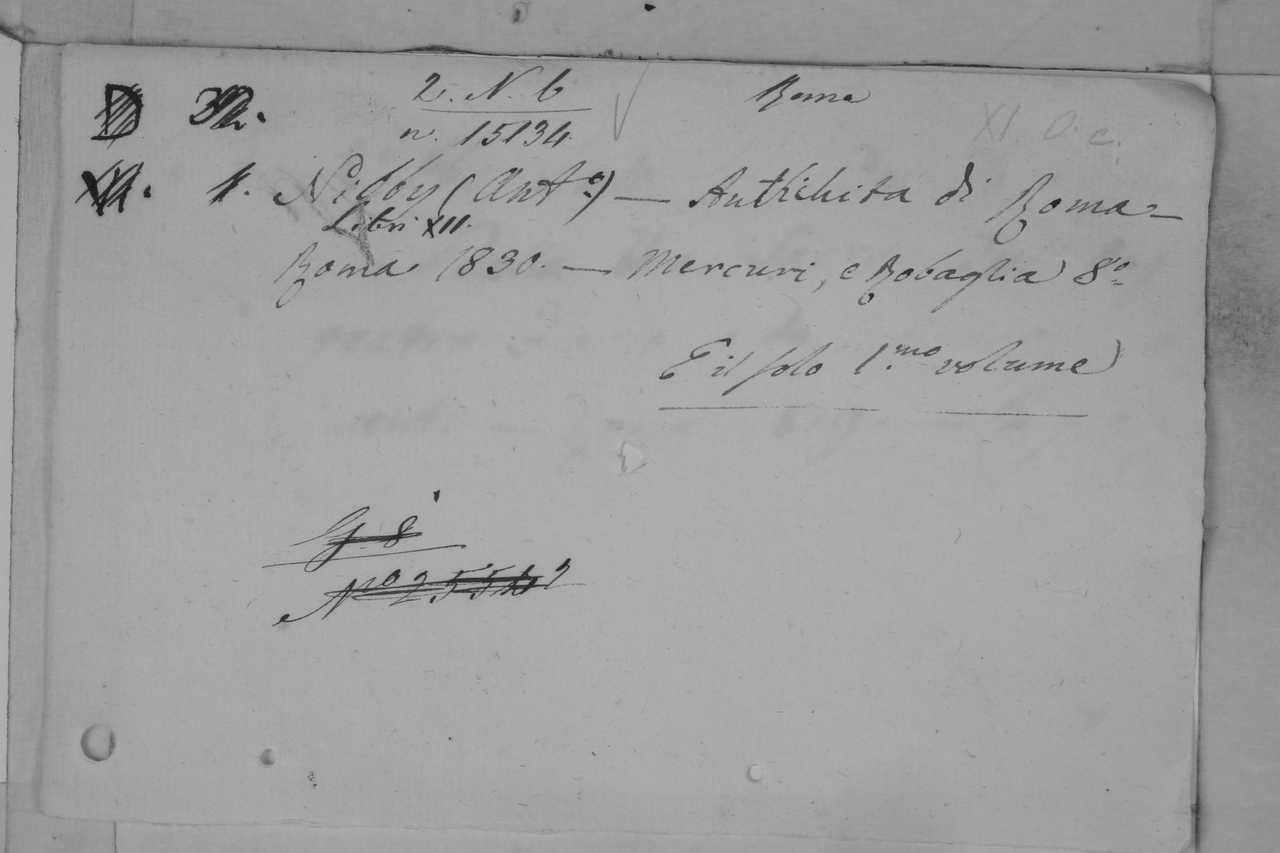 D 32. 2. N. 6 Roma XI. O. c.
n. 15134
1. Nibby (Ant.º) — Antichita di Roma —
Libri XII.
Roma 1830. — Mercuri, e Robaglia 8º
È il solo 1.mo volume
G. 8
Nº 255